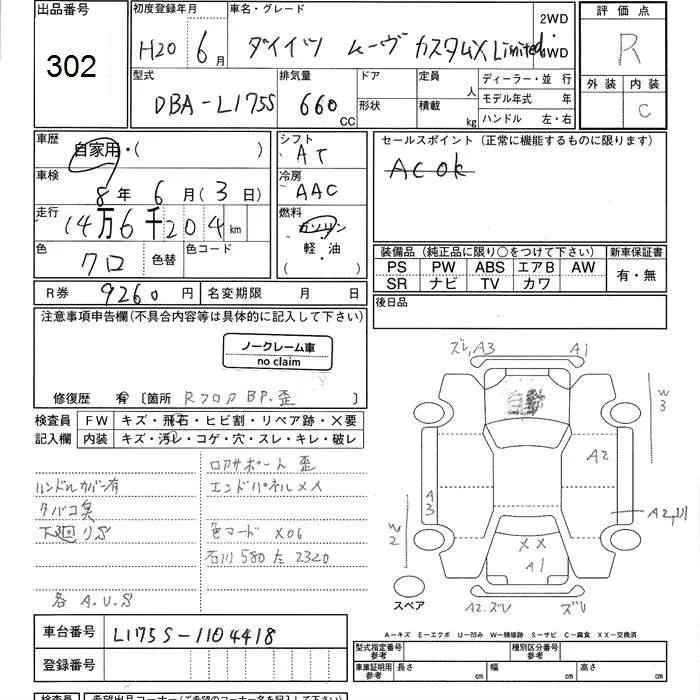 出品番号
302
初度登録年月
H20 6月
車名・グレード
ダイハツ ムーヴ カスタムX Limited
2WD
・
4WD
評価点
R
外装 内装
C
型式
DBA-L175S
排気量
660 CC
ドア
形状
定員
人
積載
kg
ディーラー・並行
モデル年式 年
ハンドル 左・右
車歴
自家用・( )
車検
8年 6月(3日)
走行
14万6千204km
色
クロ
色替
色コード
シフト
AT
冷房
AAC
燃料
ガソリン
・
軽・油
・
( )
セールスポイント(正常に機能するものに限ります)
AC OK
装備品(純正品に限り○をつけて下さい)
新車保証書
PS PW ABS エアB AW
SR ナビ TV カワ
有・無
R券 9260円
名変期限 月 日
後日品
注意事項申告欄(不具合内容等は具体的に記入して下さい)
ノークレーム車
no claim
修復歴 有 〔箇所 Rフロア BP.歪 〕
検査員
記入欄
FW キズ・飛石・ヒビ割・リペア跡・X要
内装 キズ・汚レ・コゲ・穴・スレ・キレ・破レ
ロアサポート歪
ハンドルカバー有
エンドパネルメ人
タバコ臭
下廻りS
色コード X06
石川 580 左 2320
各 A.U.S
ズレ,A3
A1
W3
A2
A3
A2,U1
W2
XX
A1
スペア
A2.ズレ
ズレ
A-キズ E-エクボ U-凹み W-補修跡 S-サビ C-腐食 XX-交換済
車台番号
L175S-1104418
登録番号
型式指定番号
参考
種別区分番号
参考
車庫証明用
参考
長さ cm
幅 cm
高さ cm
検査員
希望出品コーナー(ご希望のコーナー名を記入して下さい)